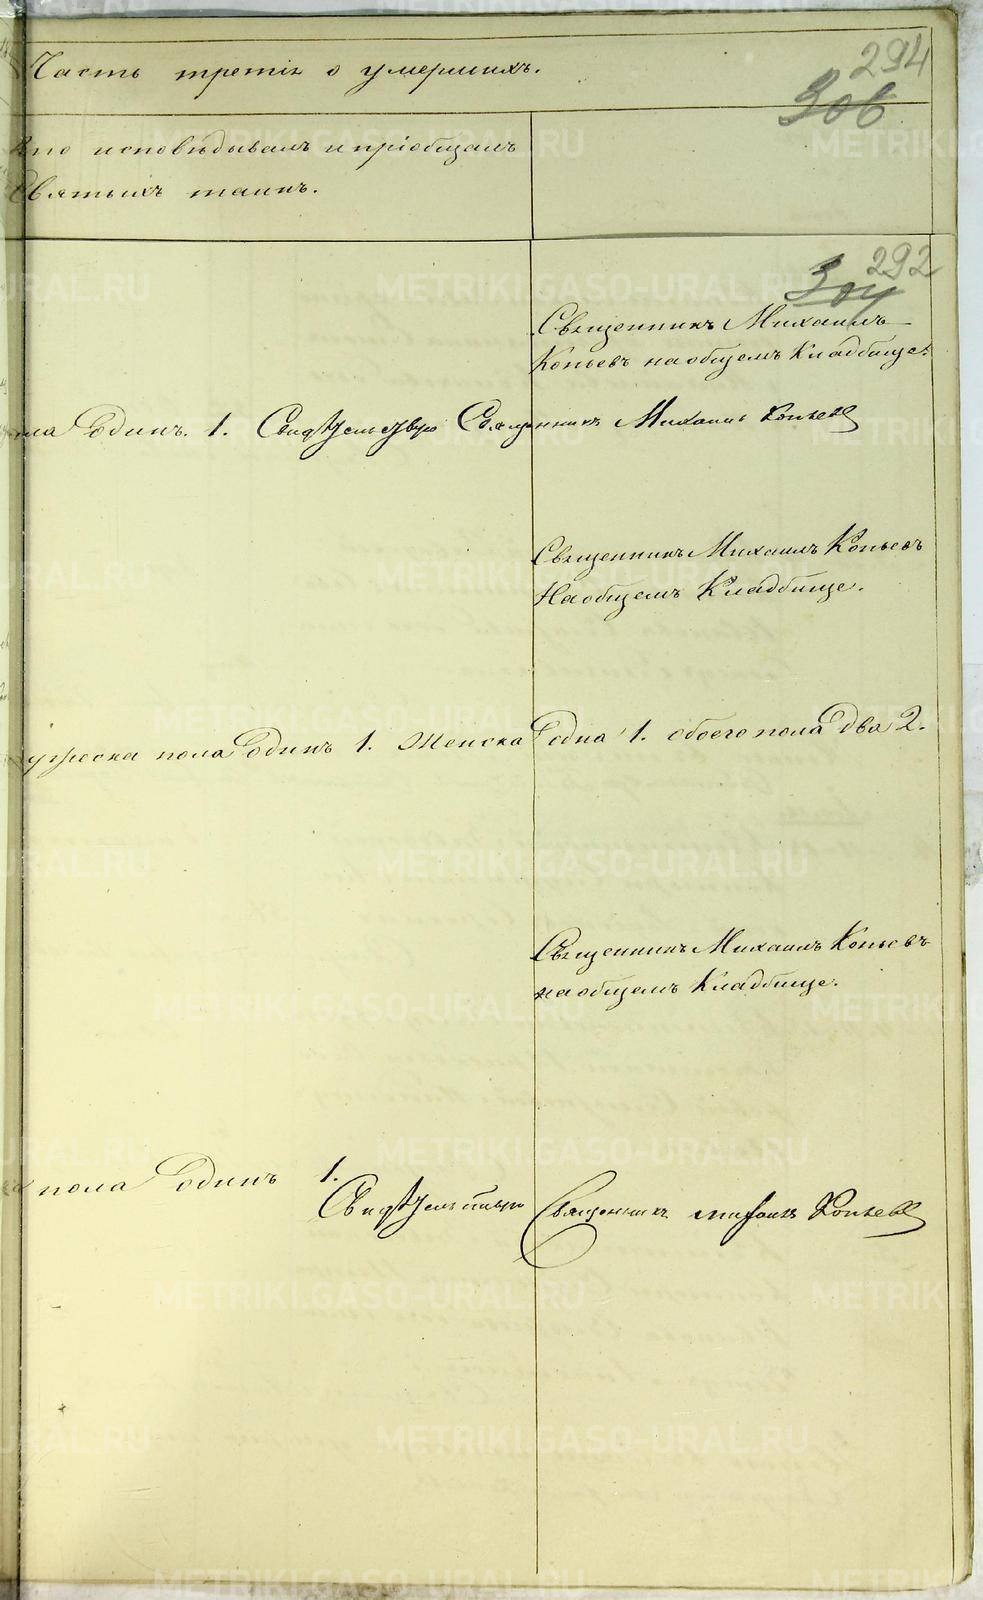 294
Часть третія о умершихъ.
306
Кто исповѣдывалъ и пріобщалъ
Святыхъ таинъ.
292
304
Священникъ Михаилъ
Копьевъ на общемъ Кладбище.
ла Одинъ. 1. Свидѣтельствую Священникъ Михаилъ Копьевъ
Священникъ Михаилъ Копьевъ
На общемъ Кладбище.
мужеска пола Одинъ 1. Женска Одна 1. обоего пола Два 2.
Священникъ Михаилъ Копьевъ
на общемъ Кладбище.
пола Одинъ 1.
Свидѣтельствую Священникъ Михаилъ Копьевъ
METRIKI.GASO-URAL.RU